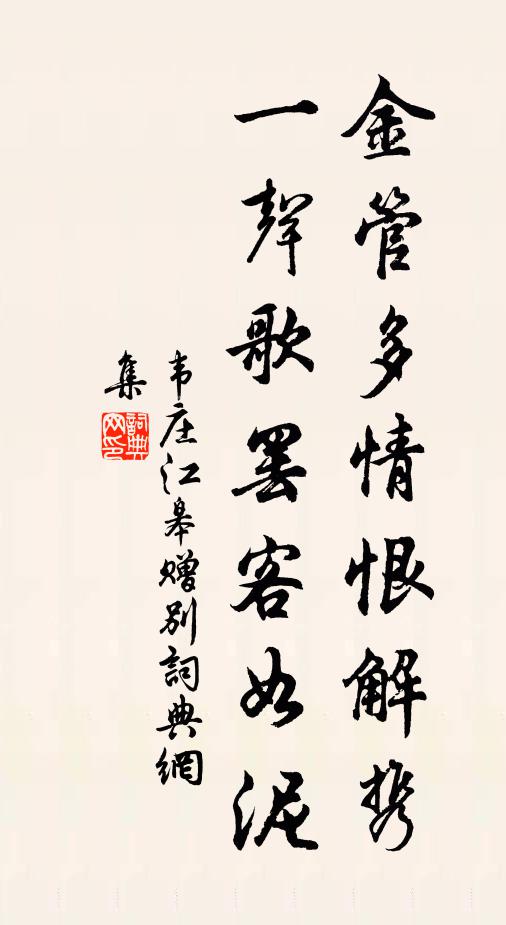 金管多情恨解携
一聲歌罷客如泥
韦庄江皋赠别詞典網
集
詞典网印